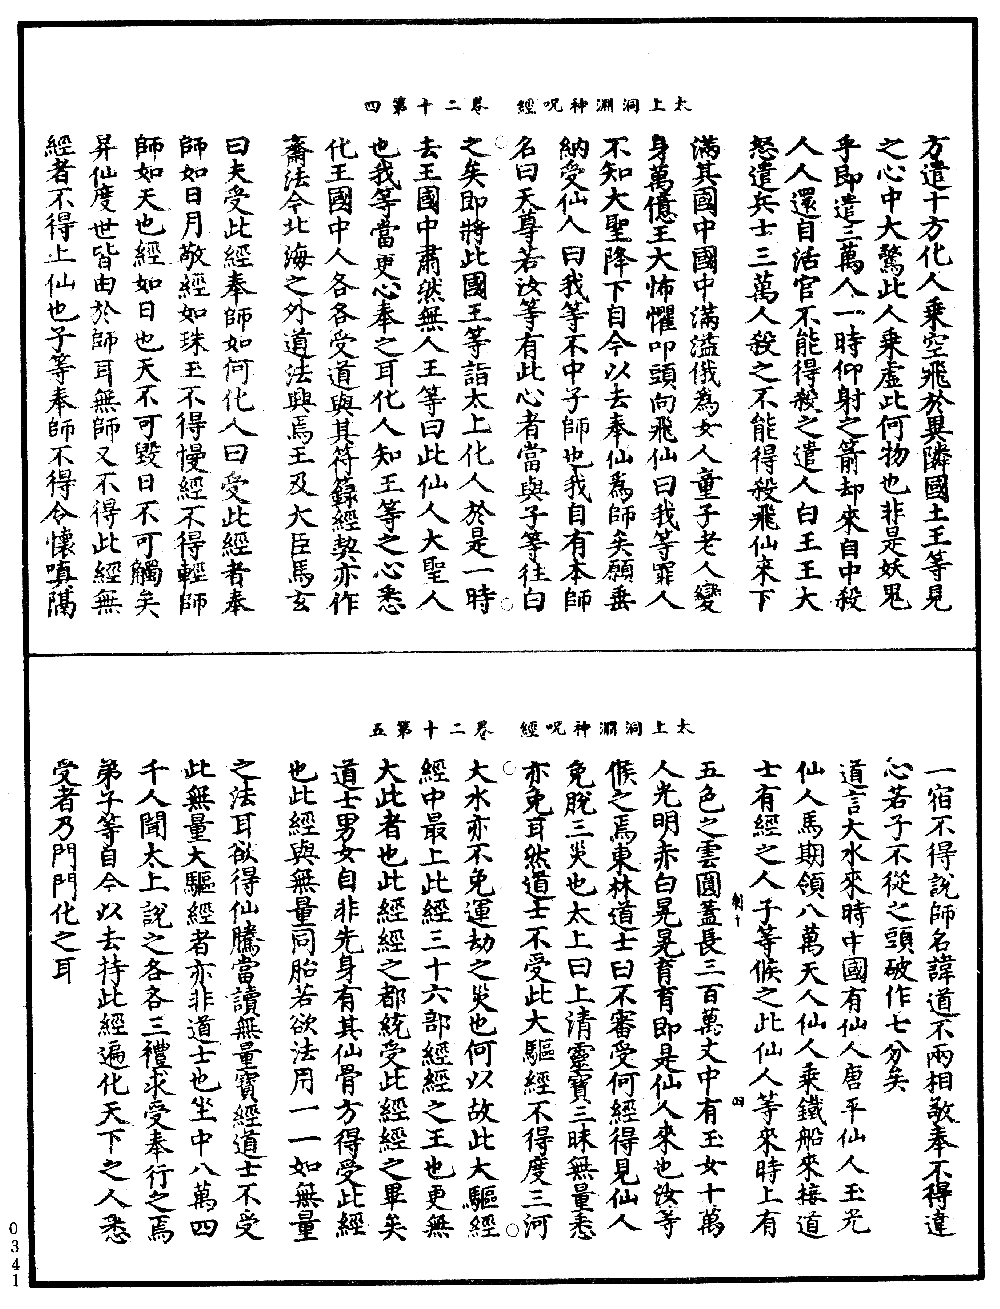 太上洞淵神呪經　卷二十第四
方遣十方化人乘空飛於異隣國土王等見
之心中大驚此人乘虛此何物也非是妖鬼
乎即遣三萬人一時仰射之箭却來自中殺
人人還自活官不能得殺之遣人白王王大
怒遣兵士三萬人殺之不能得殺飛仙來下
滿其國中國中滿溢俄為女人童子老人變
身萬億王大怖懼叩頭向飛仙曰我等罪人
不知大聖降下自今以去奉仙為師矣願垂
納受仙人曰我等不中子師也我自有本師
名曰天尊若汝等有此心者當與子等往白
之矣即將此國王等詣太上化人於是一時
去王國中肅然無人王等曰此仙人大聖人
也我等當更心奉之耳化人知王等之心悉
化王國中人各各受道與其符籙經契亦作
齋法今北海之外道法興焉王及大臣馬玄
曰夫受此經奉師如何化人曰受此經者奉
師如日月敬經如珠玉不得慢經不得輕師
師如天也經如日也天不可毀日不可觸矣
昇仙度世皆由於師耳無師又不得此經無
經者不得上仙也子等奉師不得令懷嗔隔
太上洞淵神呪經　卷二十第五
一宿不得說師名諱道不兩相敬奉不得違
心若子不從之頭破作七分矣
道言大水來時中國有仙人唐平仙人王光
仙人馬期領八萬天人仙人乘鐵船來接道
士有經之人子等候之此仙人等來時上有
五色之雲圓蓋長三百萬丈中有玉女十萬
人光明赤白晃晃育育即是仙人來也汝等
候之焉東林道士曰不審受何經得見仙人
免脫三災也太上曰上清靈寶三昧無量悉
亦免耳然道士不受此大驅經不得度三河
大水亦不免運劫之災也何以故此大驅經
經中最上此經三十六部經經之王也更無
大此者也此經經之都統受此經經之畢矣
道士男女自非先身有其仙骨方得受此經
也此經與無量同胎若欲法用一一如無量
之法耳欲得仙騰當讀無量寶經道士不受
此無量大驅經者亦非道士也坐中八萬四
千人聞太上說之各各三禮求受奉行之焉
弟子等自今以去持此經遍化天下之人悉
受者乃門門化之耳
0341